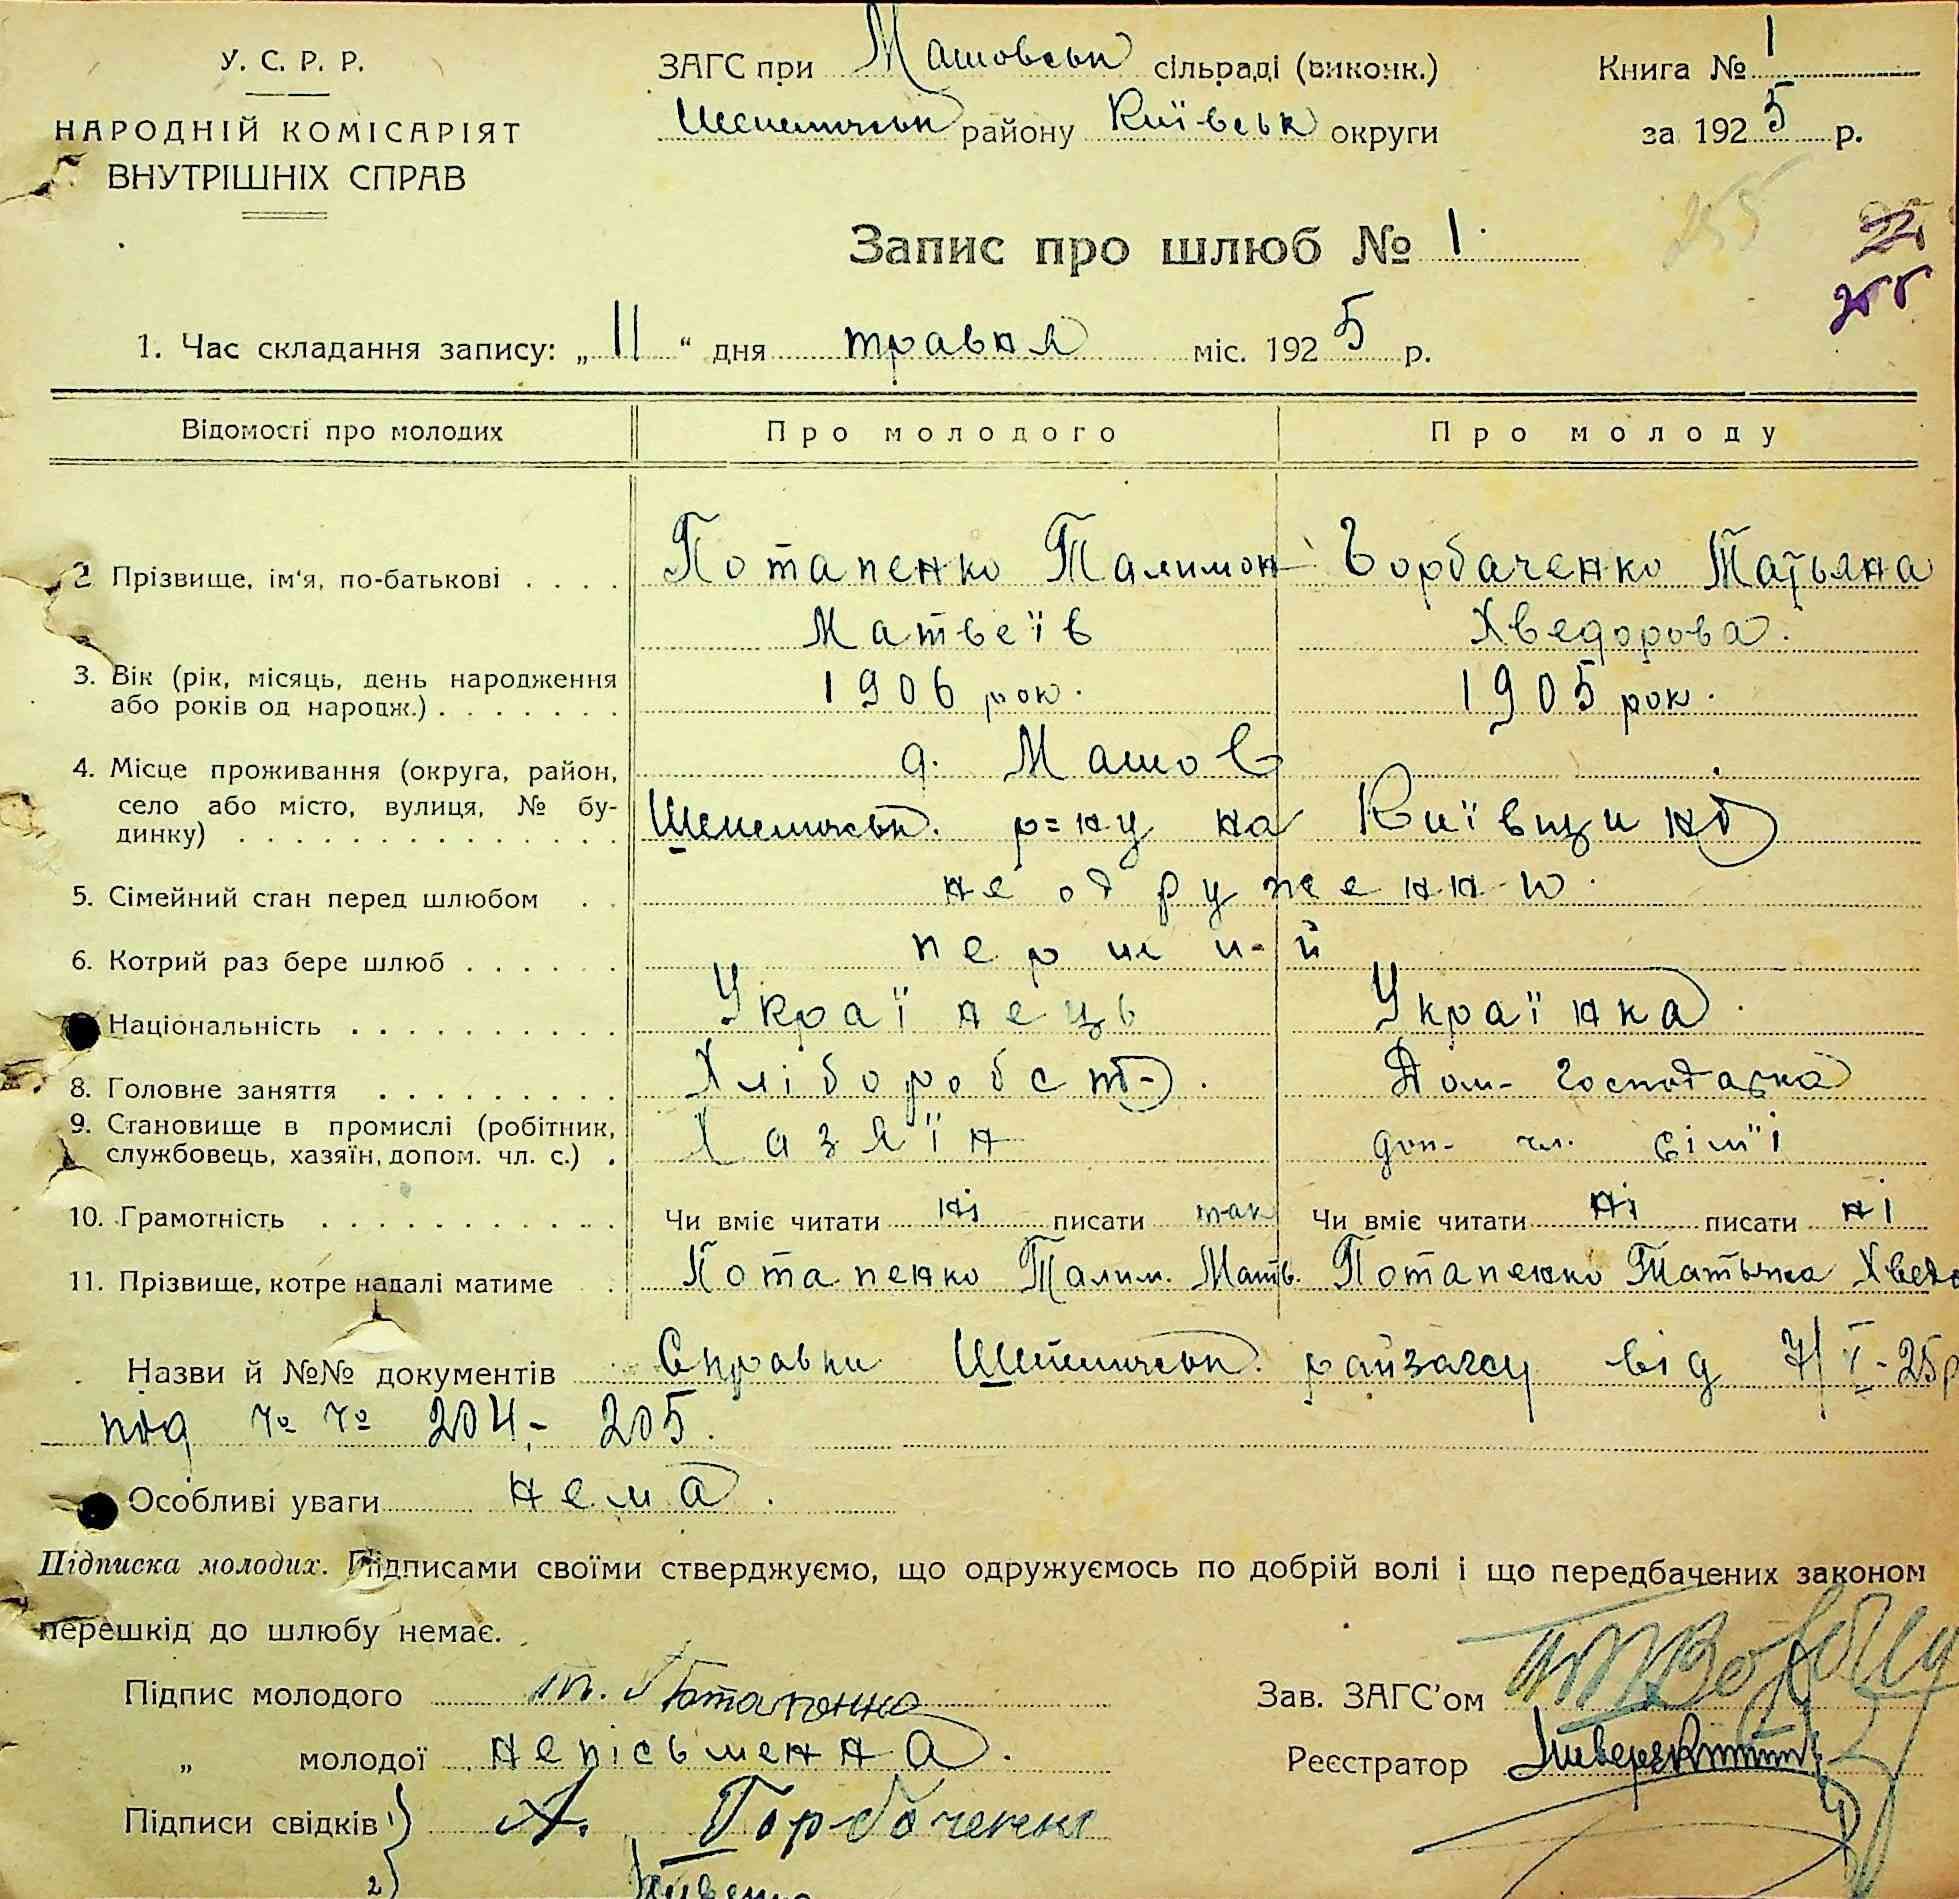 У. С. Р. Р.
НАРОДНІЙ КОМІСАРІЯТ
ВНУТРІШНІХ СПРАВ
ЗАГС при Машовськ сільраді (виконк.)
Шепелическ району Київськ округи
Книга № 1
за 1925 р.
255
255
Запис про шлюб № 1.
1. Час складання запису: „ 11 “ дня травня міс. 1925 р.
Відомості про молодих Про молодого Про молоду
2 Прізвище, ім'я, по-батькові . . . . Потапенко Талимон Горбаченко Татьяна
Матвеїв Хведорова.
3. Вік (рік, місяць, день народження 1906 рок. 1905 рок.
або років од народж.) . . . . . . .
4. Місце проживання (округа, район, д. Машов
село або місто, вулиця, № бу- Шепелическ. р=ну на Київщині
динку) . . . . . . . . . . . . . .
5. Сімейний стан перед шлюбом . . не одружени
6. Котрий раз бере шлюб . . . . . . перши-й
Національність . . . . . . . . . . Українець Українка
8. Головне заняття . . . . . . . . . Хліборобст- Дом- господарка
9. Становище в промислі (робітник, Хазяїн доп- чл. сім'ї
службовець, хазяїн, допом. чл. с.) .
10. Грамотність . . . . . . . . . . . Чи вміє читати ні писати так Чи вміє читати ні писати ні
11. Прізвище, котре надалі матиме . Потапенко Талим. Матв. Потапенко Татьяна Хведо
Назви й №№ документів Справки Шепелическ. райзагсу від 7/V-25р
під №№ 204,- 205.
Особливі уваги нема.
Підписка молодих. Підписами своїми стверджуємо, що одружуємось по добрій волі і що передбачених законом
перешкід до шлюбу немає.
Підпис молодого т. Потапенко
Зав. ЗАГС'ом
„ молодої непісьменна.
Реєстратор
Підписи свідків 1 А. Горбаченко
2